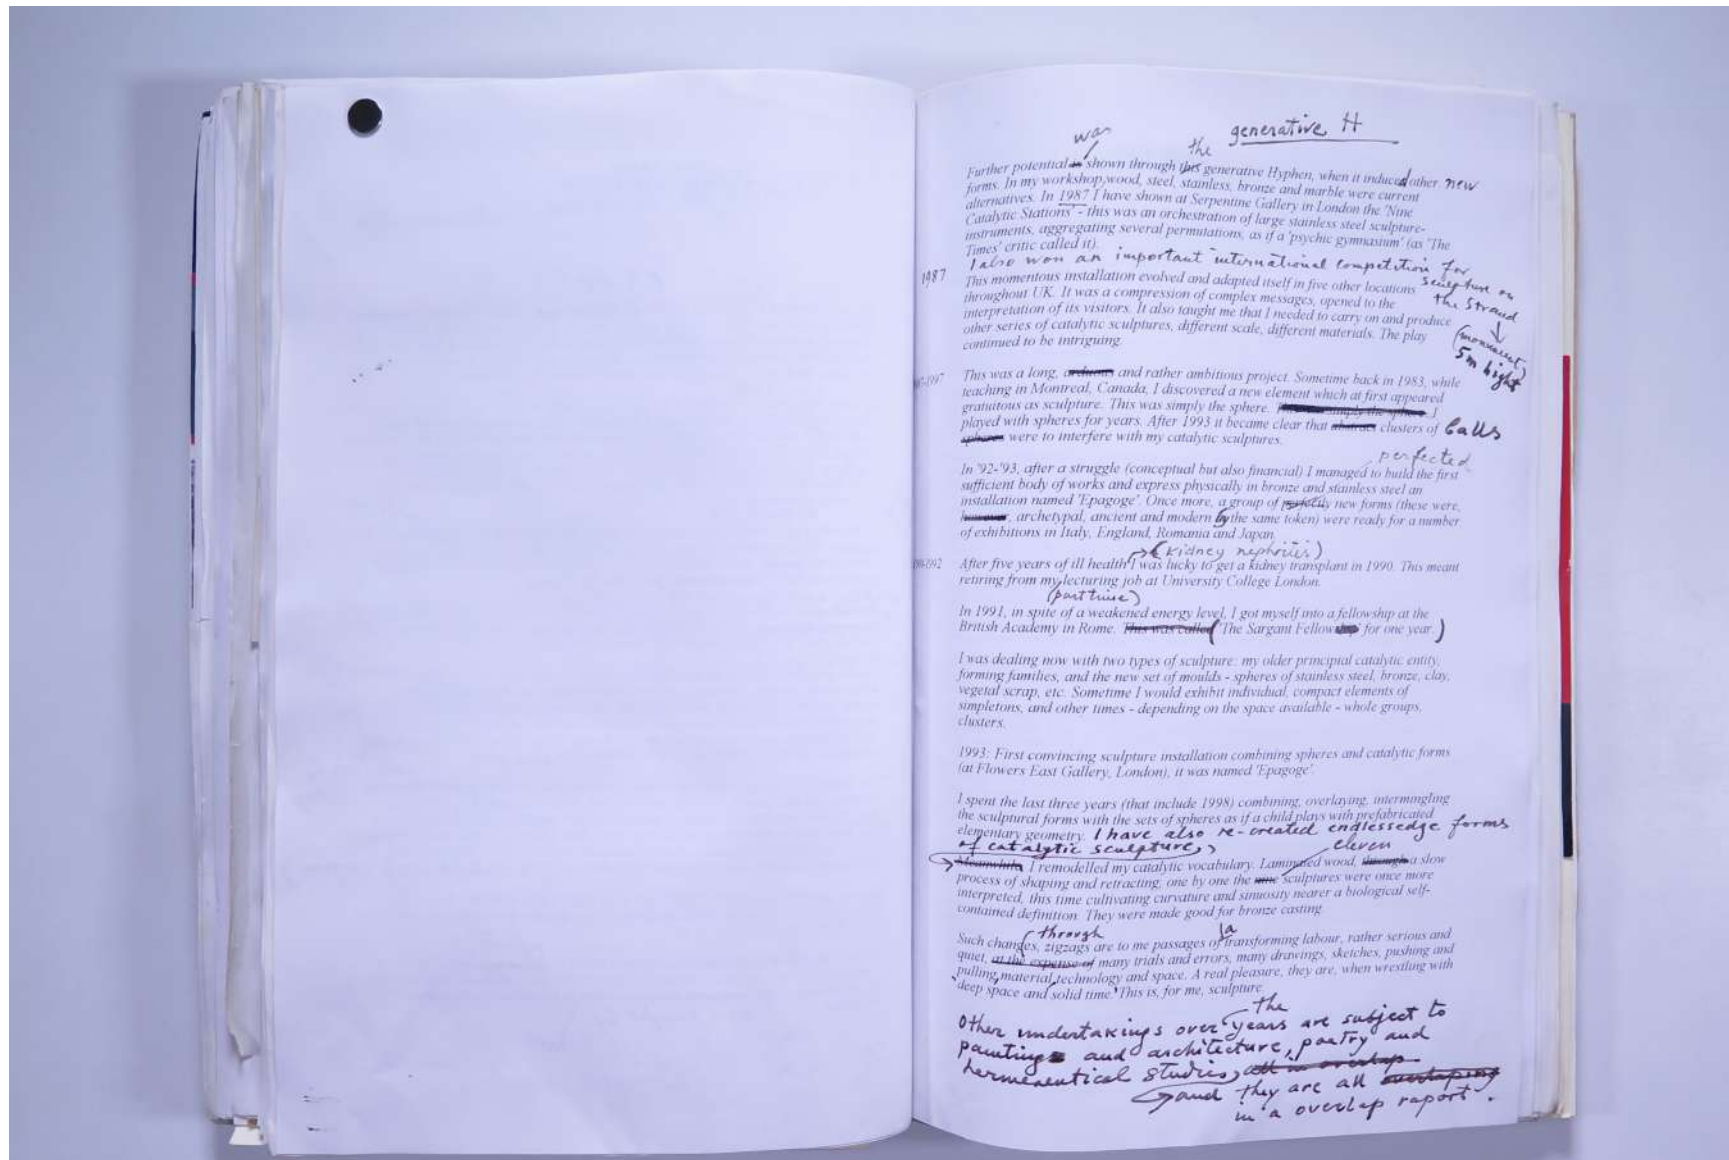 generative H
was
the
Further potential is shown through this generative Hyphen, when it induced other new
forms. In my workshop, wood, steel, stainless, bronze and marble were current
alternatives. In 1987 I have shown at Serpentine Gallery in London the 'Nine
Catalytic Stations' - this was an orchestration of large stainless steel sculpture-
instruments, aggregating several permutations, as if a 'psychic gymnasium' (as 'The
Times' critic called it).
I also won an important international competition for
sculpture on
the Strand
(monument)
5m hight
1987
This momentous installation evolved and adapted itself in five other locations
throughout UK. It was a compression of complex messages, opened to the
interpretation of its visitors. It also taught me that I needed to carry on and produce
other series of catalytic sculptures, different scale, different materials. The play
continued to be intriguing.
This was a long, arduous and rather ambitious project. Sometime back in 1983, while
teaching in Montreal, Canada, I discovered a new element which at first appeared
gratuitous as sculpture. This was simply the sphere. simply the sphere. I
played with spheres for years. After 1993 it became clear that abstract clusters of balls
spheres were to interfere with my catalytic sculptures.
perfected
In '92-'93, after a struggle (conceptual but also financial) I managed to build the first
sufficient body of works and express physically in bronze and stainless steel an
installation named 'Epagoge'. Once more, a group of new forms (these were,
however, archetypal, ancient and modern by the same token) were ready for a number
of exhibitions in Italy, England, Romania and Japan.
(kidney nephritis)
After five years of ill health I was lucky to get a kidney transplant in 1990. This meant
retiring from my lecturing job at University College London.
(part time)
In 1991, in spite of a weakened energy level, I got myself into a fellowship at the
British Academy in Rome. This was called ('The Sargant Fellowship' for one year.)
I was dealing now with two types of sculpture: my older principial catalytic entity,
forming families, and the new set of moulds - spheres of stainless steel, bronze, clay,
vegetal scrap, etc. Sometime I would exhibit individual, compact elements of
simpletons, and other times - depending on the space available - whole groups,
clusters.
1993: First convincing sculpture installation combining spheres and catalytic forms
(at Flowers East Gallery, London), it was named 'Epagoge'.
I spent the last three years (that include 1998) combining, overlaying, intermingling
the sculptural forms with the sets of spheres as if a child plays with prefabricated
elementary geometry. I have also re-created endlessedge forms
of catalytic sculpture,
eleven
Meanwhile I remodelled my catalytic vocabulary. Laminated wood, through a slow
process of shaping and retracting, one by one the nine sculptures were once more
interpreted, this time cultivating curvature and sinuosity nearer a biological self-
contained definition. They were made good for bronze casting.
through
a
Such changes, zigzags are to me passages of transforming labour, rather serious and
quiet, at the expense of many trials and errors, many drawings, sketches, pushing and
pulling, material, technology and space. A real pleasure, they are, when wrestling with
'deep space and solid time.' This is, for me, sculpture.
the
Other undertakings over years are subject to
painting and architecture, poetry and
hermeneutical studies, all in overlap
and they are all overlaping
in a overlap raport.